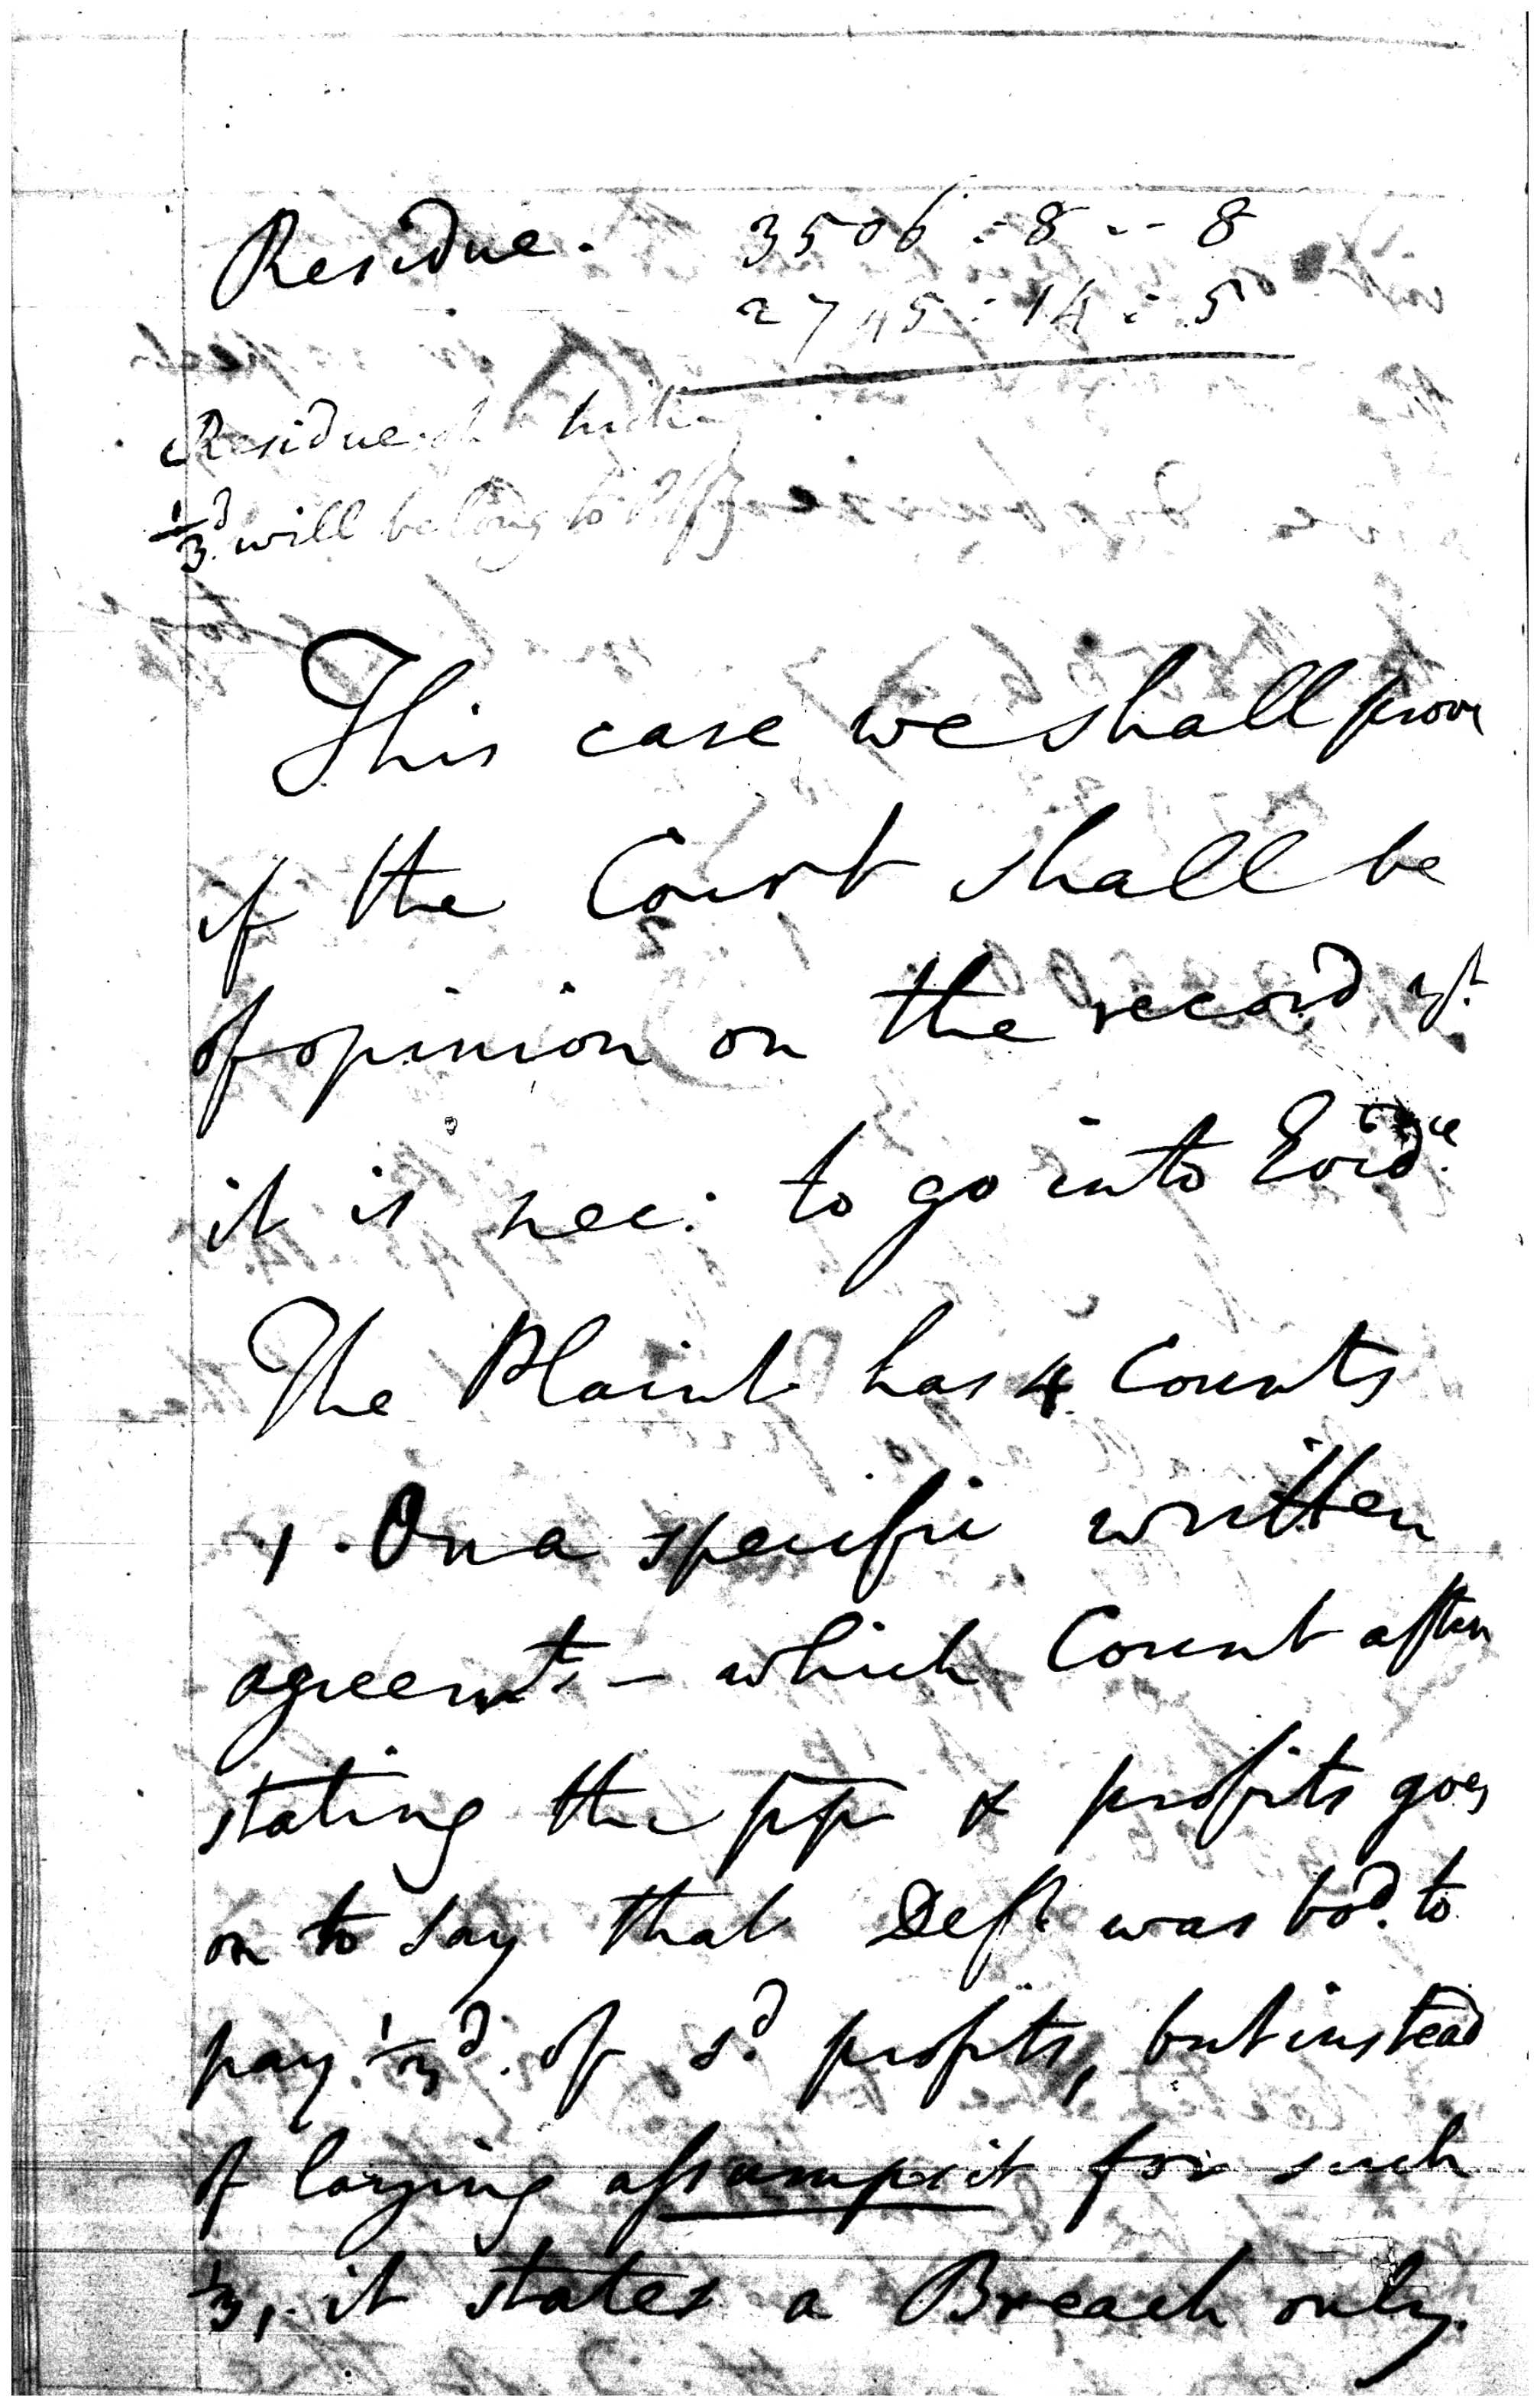 Residue. 3506 : 8 -- 8
2745 : 14 : 5
Residue of which
1/3d. will belong to Plff
This case we shall prove
if the Court shall be
of opinion on the record yt.
it is nec: to go into Evidce.
The Plaint has 4 Counts
1. On a specific written
agreemt. – which Count after
stating the pp & profits goes
on to say that Deft was bod. to
pay 1/3d. of sd. profits, but instead
of laying assumpsit for such
1/3, it states a Breach only.